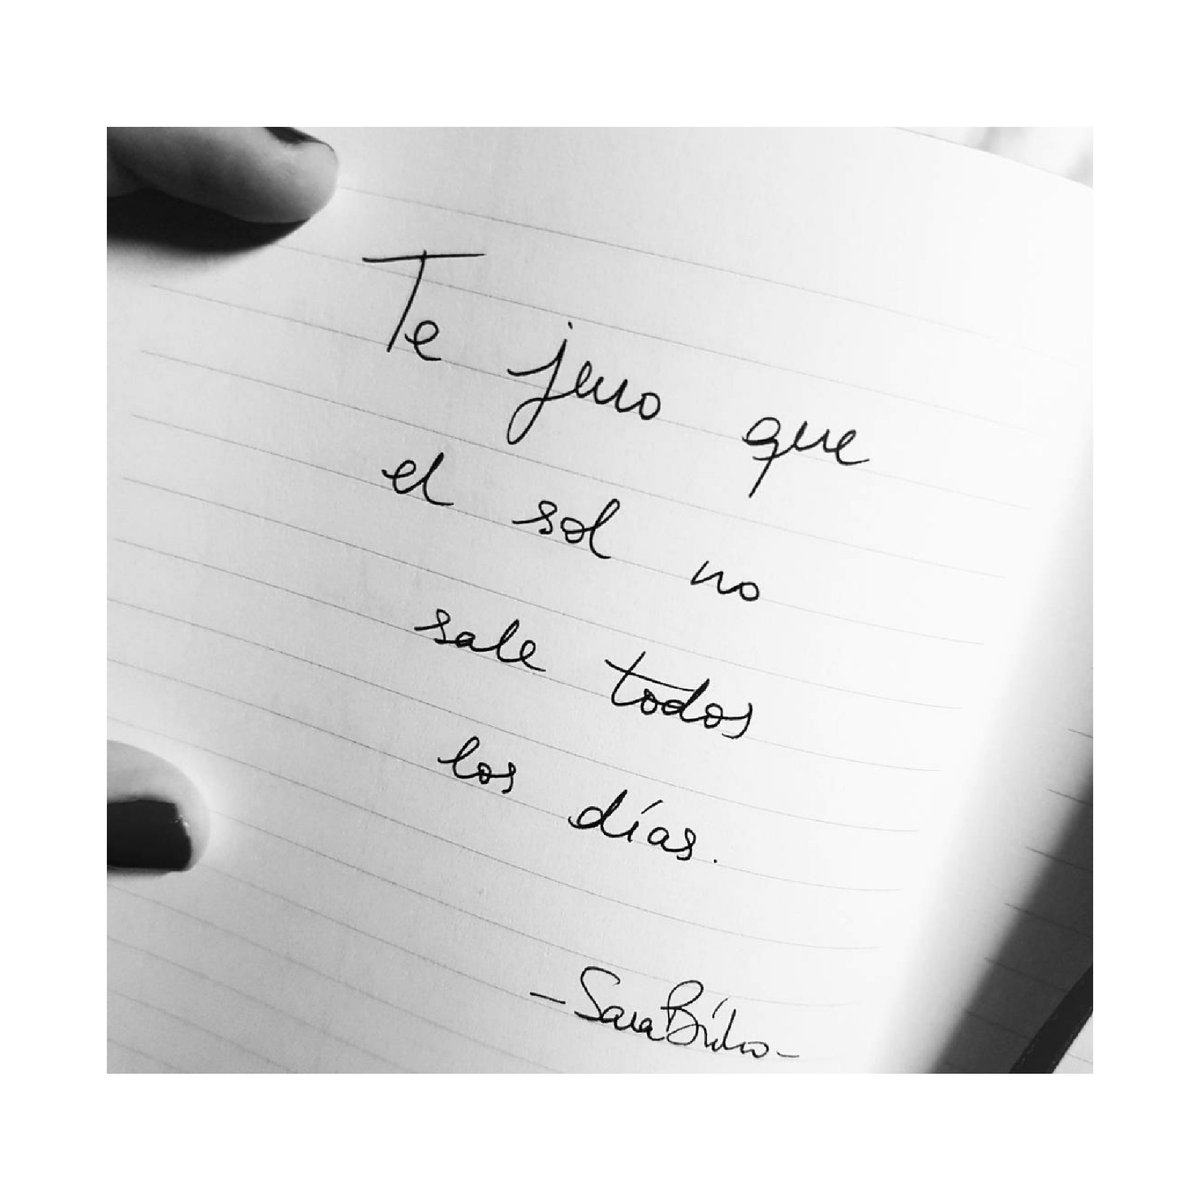 Te juro que
el sol no
sale todos
los días.
- Sara Búho -